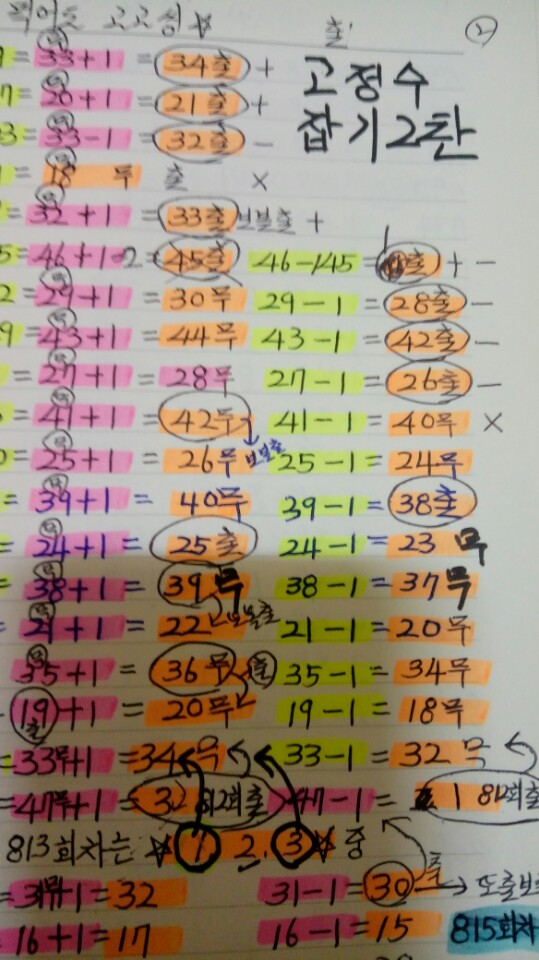 출 2
33+1 = 34출 + 고정수
7 = 20+1 = 21출 + 잡기2탄
3 = 33-1 = 32출 -
18 무 출 ×
32+1 = 33출 보볼출 +
5 = 46+1 = 2 = 45출 46-1 45 = 출 + -
2 = 29+1 = 30무 29-1 = 28출 -
9 = 43+1 = 44무 43-1 = 42출 -
= 27+1 = 28무 27-1 = 26출 -
= 41+1 = 42무 41-1 = 40무 ×
= 25+1 = 26무 보볼출 25-1 = 24무
= 39+1 = 40무 39-1 = 38출
= 24+1 = 25출 24-1 = 23 무
= 38+1 = 39무 38-1 = 37무
= 21+1 = 22 보볼출 21-1 = 20무
35+1 = 36무 출 35-1 = 34무
19출+1 = 20무 19-1 = 18무
= 33무+1 = 34무 33-1 = 32무
= 47무+1 = 3 812회출 47-1 = 1 812회출
813회차는 1 2. 3 중
= 31무+1 = 32 31-1 = 30 출
= 16+1 = 17 16-1 = 15 815회차